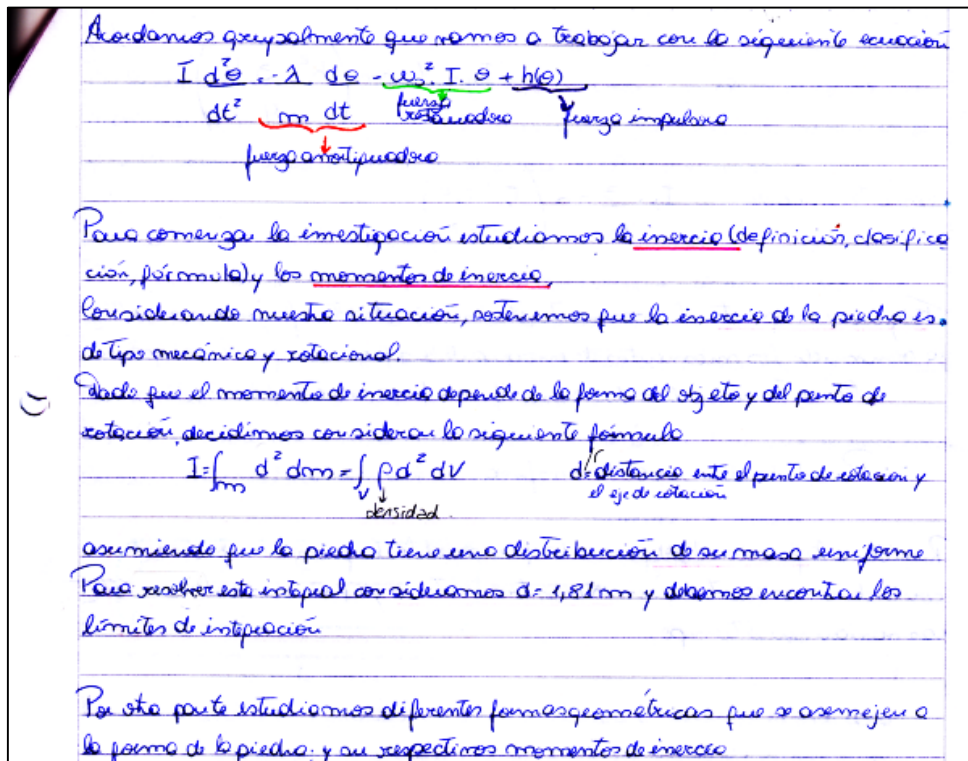 Acordamos grupalmente que vamos a trabajar con la siguiente ecuación
I d²θ = -λ dθ - ω₀². I. θ + h(θ)
dt² m dt fuerza restauradora fuerza impulsora
fuerza amortiguadora
Para comenzar la investigación estudiamos la inercia (definición, clasifica
ción, fórmula) y los momentos de inercia,
Considerando nuestra situación, sostenemos que la inercia de la piedra es
de tipo mecánica y rotacional.
Dado que el momento de inercia depende de la forma del objeto y del punto de
rotación, decidimos considerar la siguiente fórmula
I=∫m d² dm = ∫v ρ d² dV d= distancia ente el punto de rotación y
densidad el eje de rotación
asumiendo que la piedra tiene una distribución de su masa uniforme
Para resolver esta integral consideramos d= 1,81 m y debemos encontrar los
límites de integración
Por otra parte estudiamos diferentes formas geométricas que se asemejen a
la forma de la piedra y su respectivos momentos de inercia